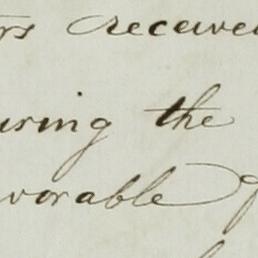 rs received
uring the
vorable